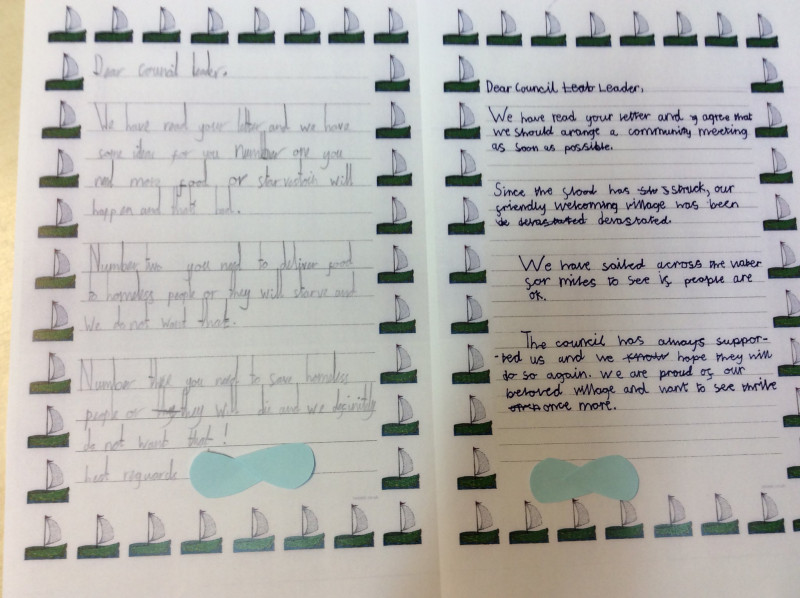 Dear Council leader,
We have read your letter and we have
some ideas for you Number one you
ned more food or starvatoin will
happen and thats bad.
Number two you need to deliver food
to homeless people or they will starve and
We do not want that.
Number three you need to save homeless
people or they will die and we definitely
do not want that!
best reguards
Dear Council Leab Leader,
We have read your letter and y agree that
we should arange a community meeting
as soon as possible.
Since the flood has struck, our
friendly welcoming village has been
devastated devastated.
We have sailed across the water
for miles to see if people are
ok.
The council has always suppor-
-ted us and we know hope they will
do so again. We are proud of our
beloved village and want to see thrive
once more.